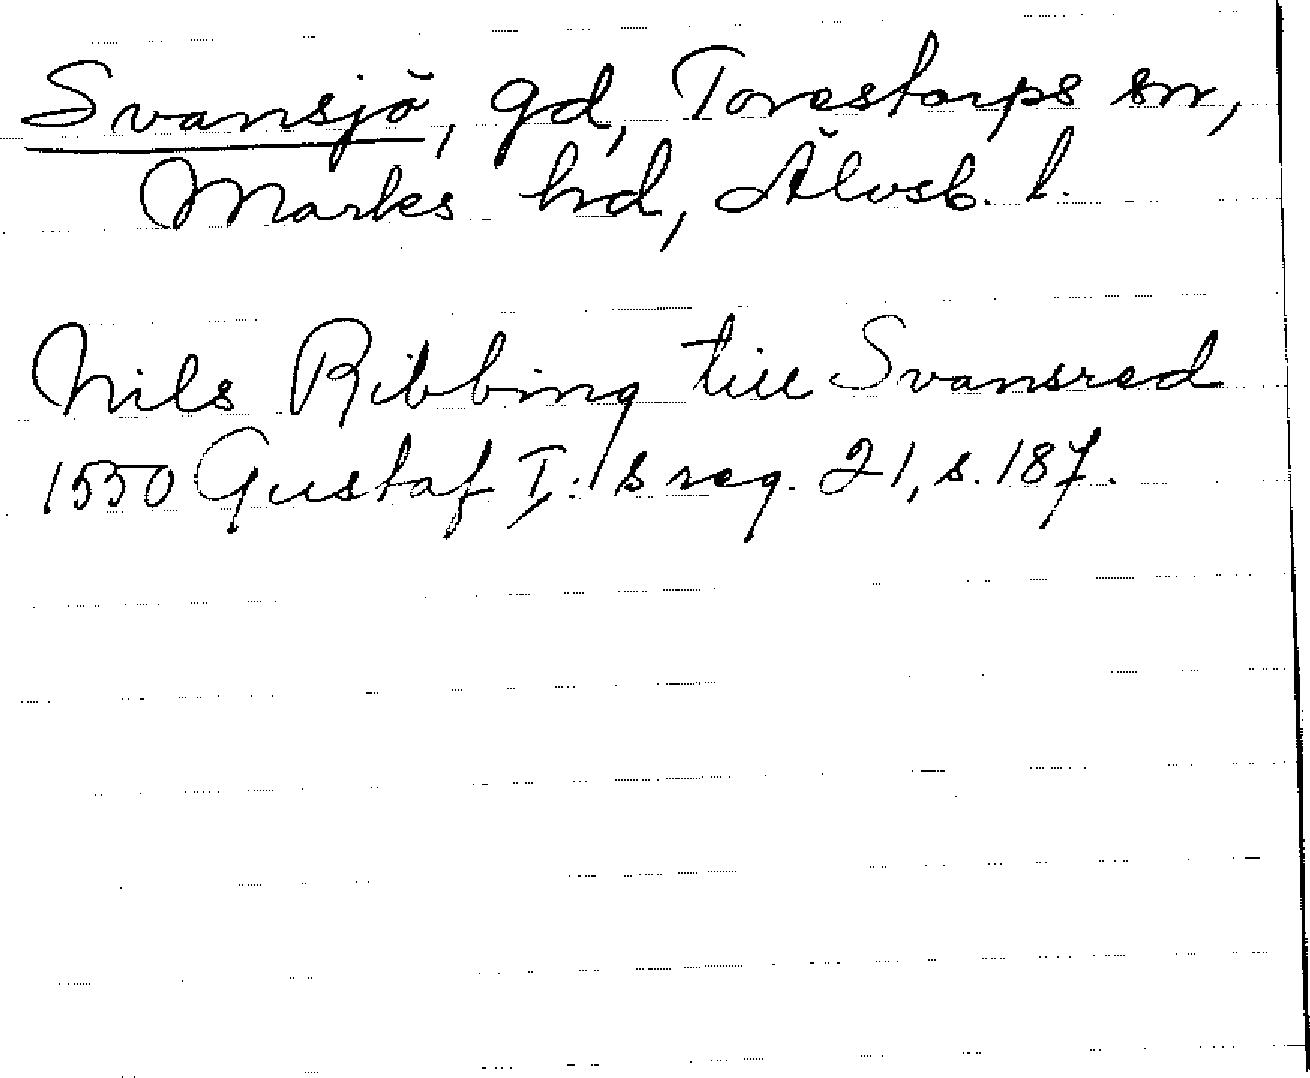 Svansjö, gd, Torestorps sn,
Marks hd, Älvsb. l.
Nils Ribbing till Svansred
1550 Gustaf I:s reg. 21, s. 187.